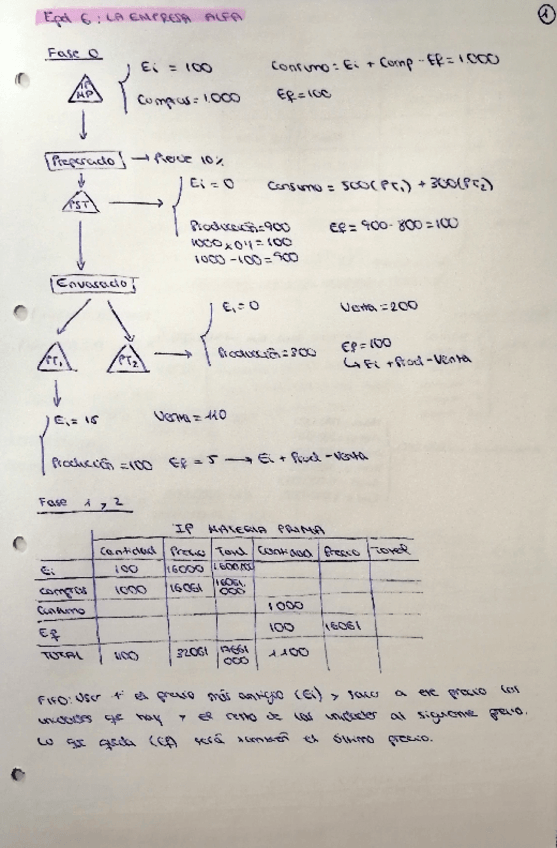 Epd 6: LA EMPRESA ALFA
1
Fase 0
IP MP
Ei = 100
Consumo = Ei + Comp - Ef = 1.000
Compras = 1.000
Ef = 100
Preparado → Pierde 10%
PST
Ei = 0
Consumo = 500 (PT1) + 300 (PT2)
Producción = 900
Ef = 900 - 800 = 100
1000 x 0'1 = 100
1000 - 100 = 900
Envasado
PT1
PT2
Ei = 0
Venta = 200
Producción = 300
Ef = 100
↳ Ei + Prod - Venta
Ei = 15
Venta = 110
Producción = 100
Ef = 5 → Ei + Prod - Venta
Fase 1 y 2
IP MATERIA PRIMA
Cantidad Precio Total Cantidad Precio Total
Ei 100 16000
Compras 1000 16061 16061.000
Consumo 1000
Ef 100 16061
TOTAL 32061 17661 000 1.100
FIFO: Usar el precio más antiguo (Ei) y saco a ese precio las
unidades que hay y el resto de las unidades al siguiente precio.
Lo que queda (Ef) será también el último precio.